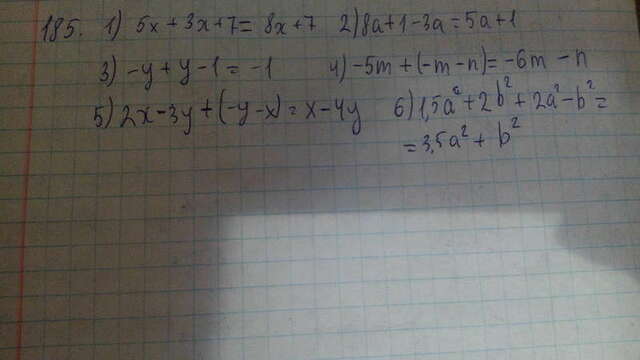 185. 1) 5x + 3x + 7 = 8x + 7 2) 8a + 1 - 3a = 5a + 1
3) -y + y - 1 = -1 4) -5m + (-m - n) = -6m - n
5) 2x - 3y + (-y - x) = x - 4y 6) 1,5a² + 2b² + 2a² - b² =
= 3,5a² + b²